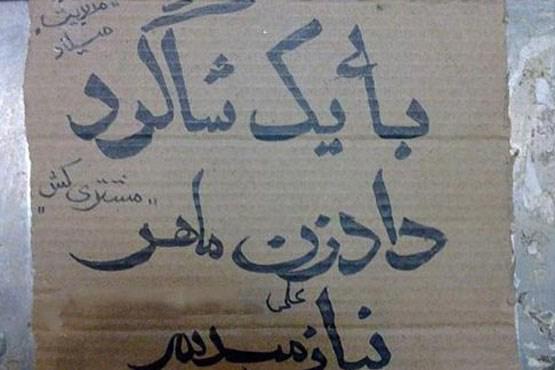 "مدیریت"
میلاد
به یک شاگرد
"مشتری کش"
دادزن ماهر
علی
نیازمندیم